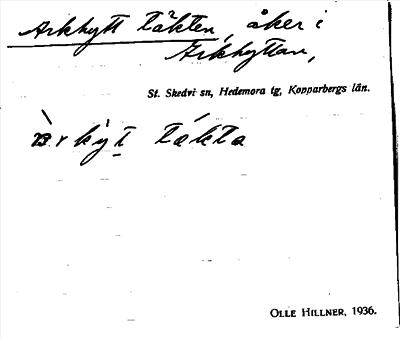 Arkhytt täkten, åker i
Arkhyttan,
St. Skedvi sn, Hedemora tg, Kopparbergs län.
tákta
OLLE HILLNER, 1936.